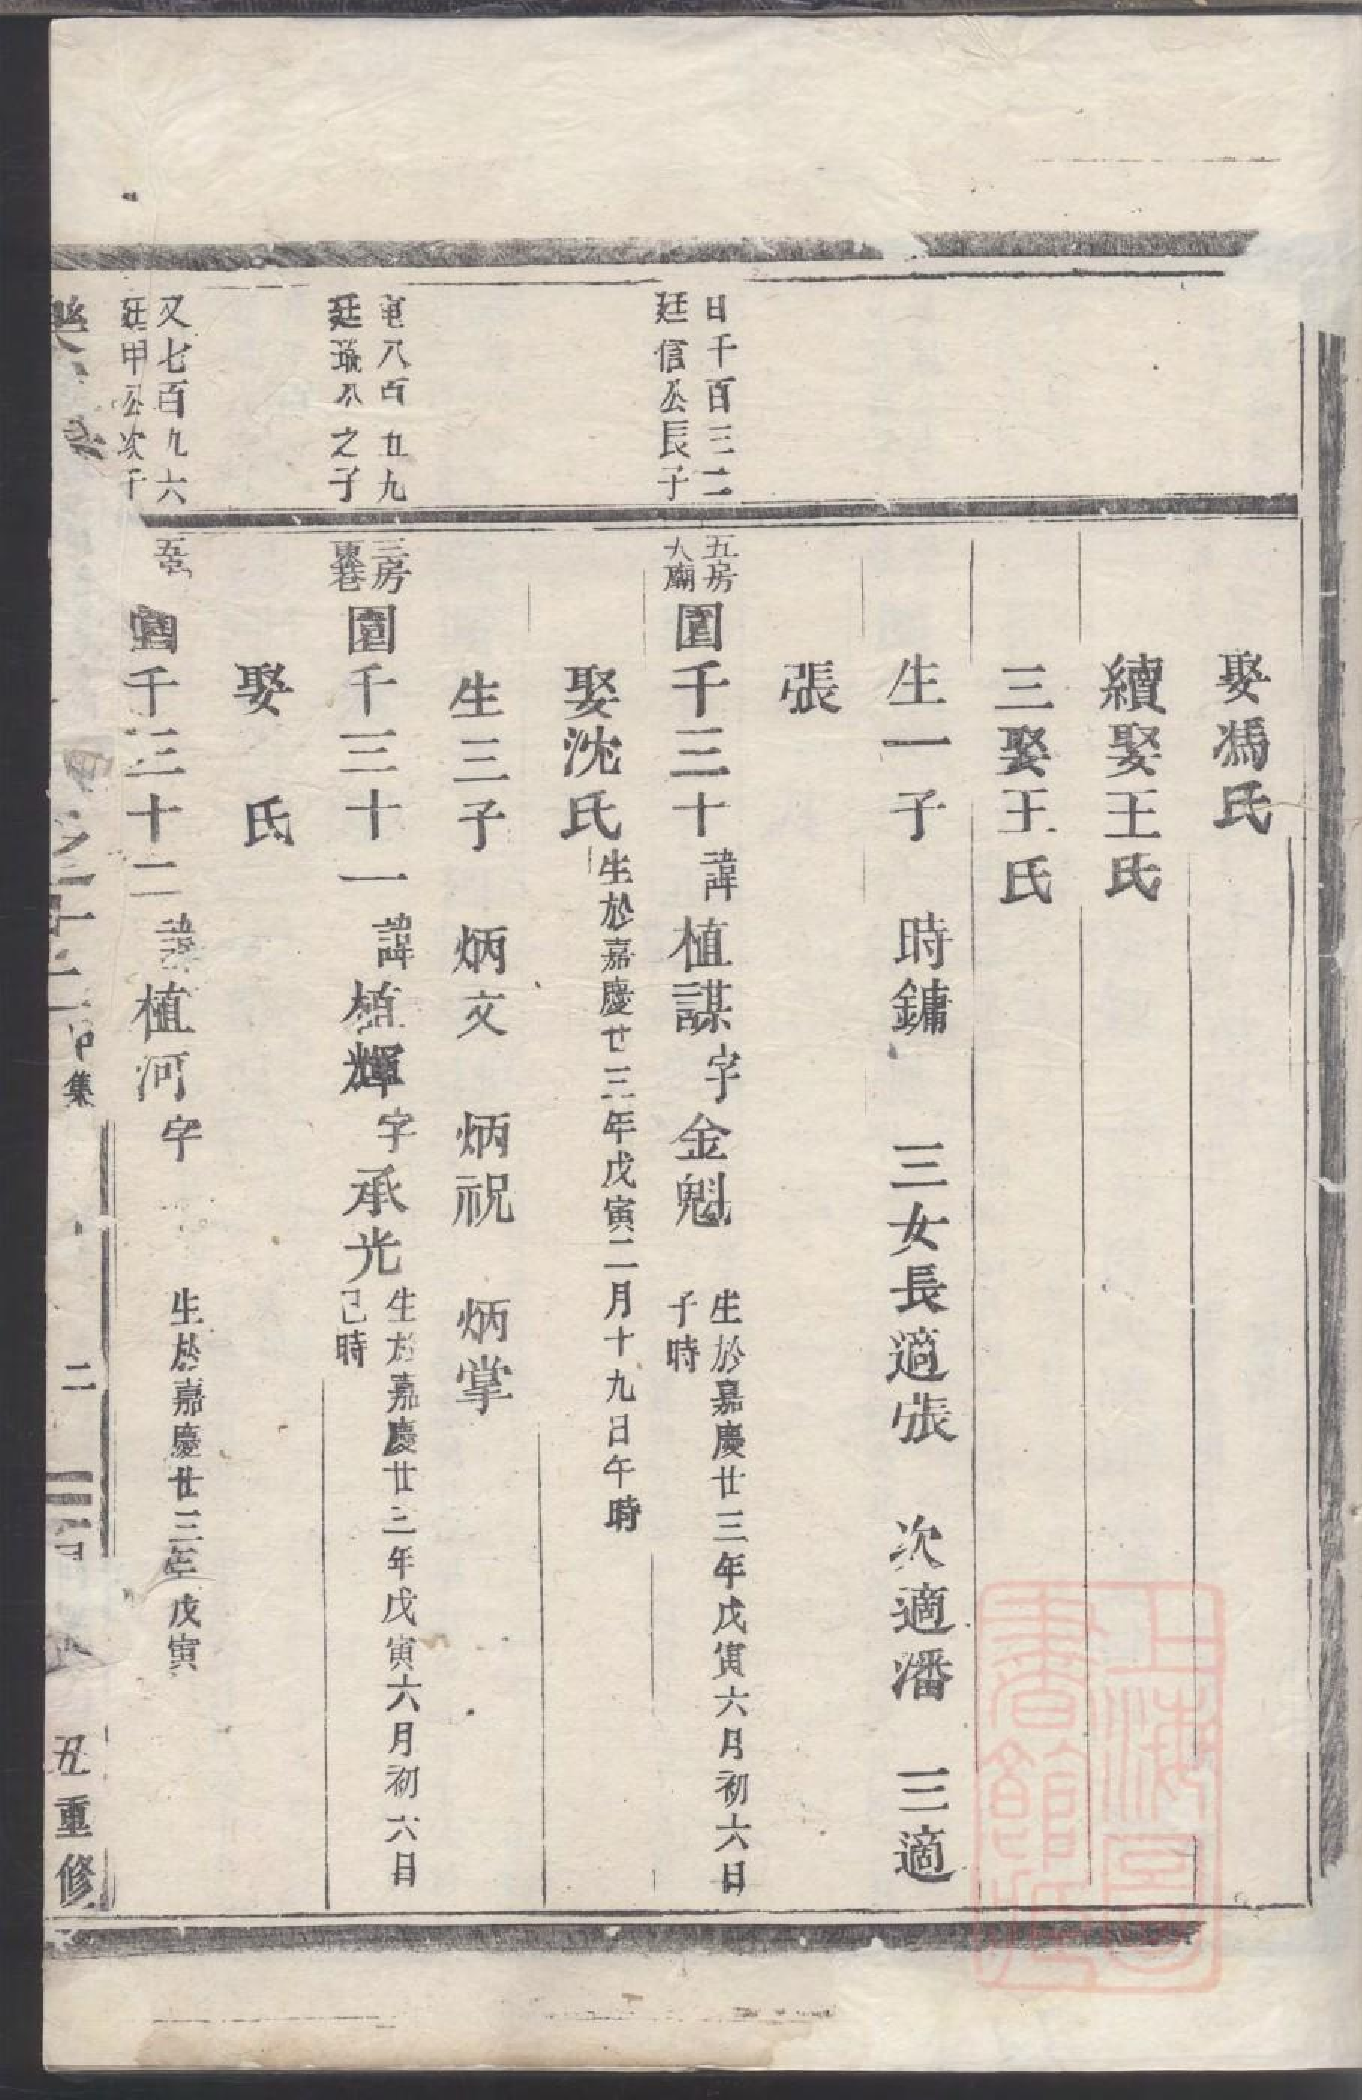 娶馮氏
續娶王氏
三娶王氏
生一子　時鏞　三女長適張　次適潘　三適
張
日千百三二
廷信公長子
五房
八廟
圓千三十諱植謀字金魁
生於嘉慶廿三年戊寅六月初六日
子時
娶沈氏
生於嘉慶廿三年戊寅二月十九日午時
生三子　炳文　炳祝　炳掌
八百五九
廷公之子
三房
東巷
圓千三十一諱植輝字承光
生於嘉慶廿三年戊寅六月初六日
巳時
娶　氏
又七百九六
廷甲公次子
千三十二諱植河字
生於嘉慶廿三年戊寅
之十二
集
二
五重修
上海圖書館藏